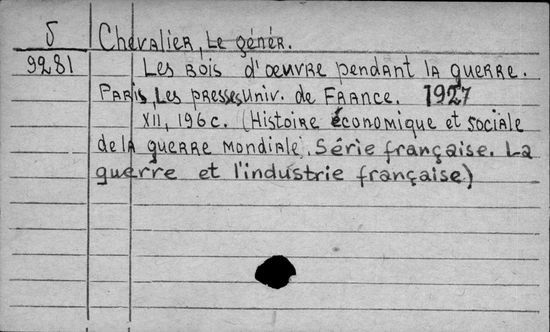 5 Chevalier, Le génér.
9281 Les bois d'œuvre pendant la guerre.
Paris, Les presses univ. de France. 1927
XII, 196 c. (Histoire économique et sociale
de la guerre mondiale. Série française. La
guerre et l'industrie française)